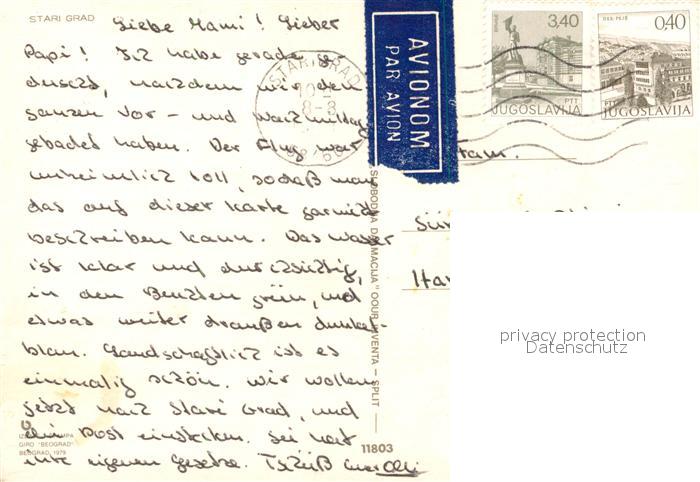 STARI GRAD
Liebe Mami! Lieber
Papi! Ich habe gerade ge-
duscht, nachdem wir den
ganzen Vor- und Nachmittag
gebadet haben. Der Flug war
unheimlich toll, sodaß man
das auf dieser Karte garnicht
beschreiben kann. Das Wasser
ist klar und durchsichtig,
in den Buchten grün, und
etwas weiter draußen dunkel-
blau. Landschaftlich ist es
einmalig schön. Wir wollen
jetzt nach Stari Grad, und
die Post einstecken. Sie hat
ihre eigenen Gesetze. Tschüß
GIRO "BEOGRAD"
BEOGRAD, 1979
11803
SLOBODNA DALMACIJA" OOUR JUVENTA – SPLIT
STARI GRAD
AVIONOM
PAR AVION
3,40
PTT
JUGOSLAVIJA
0,40
PTT
JUGOSLAVIJA
Fam.
Ha
privacy protection
Datenschutz